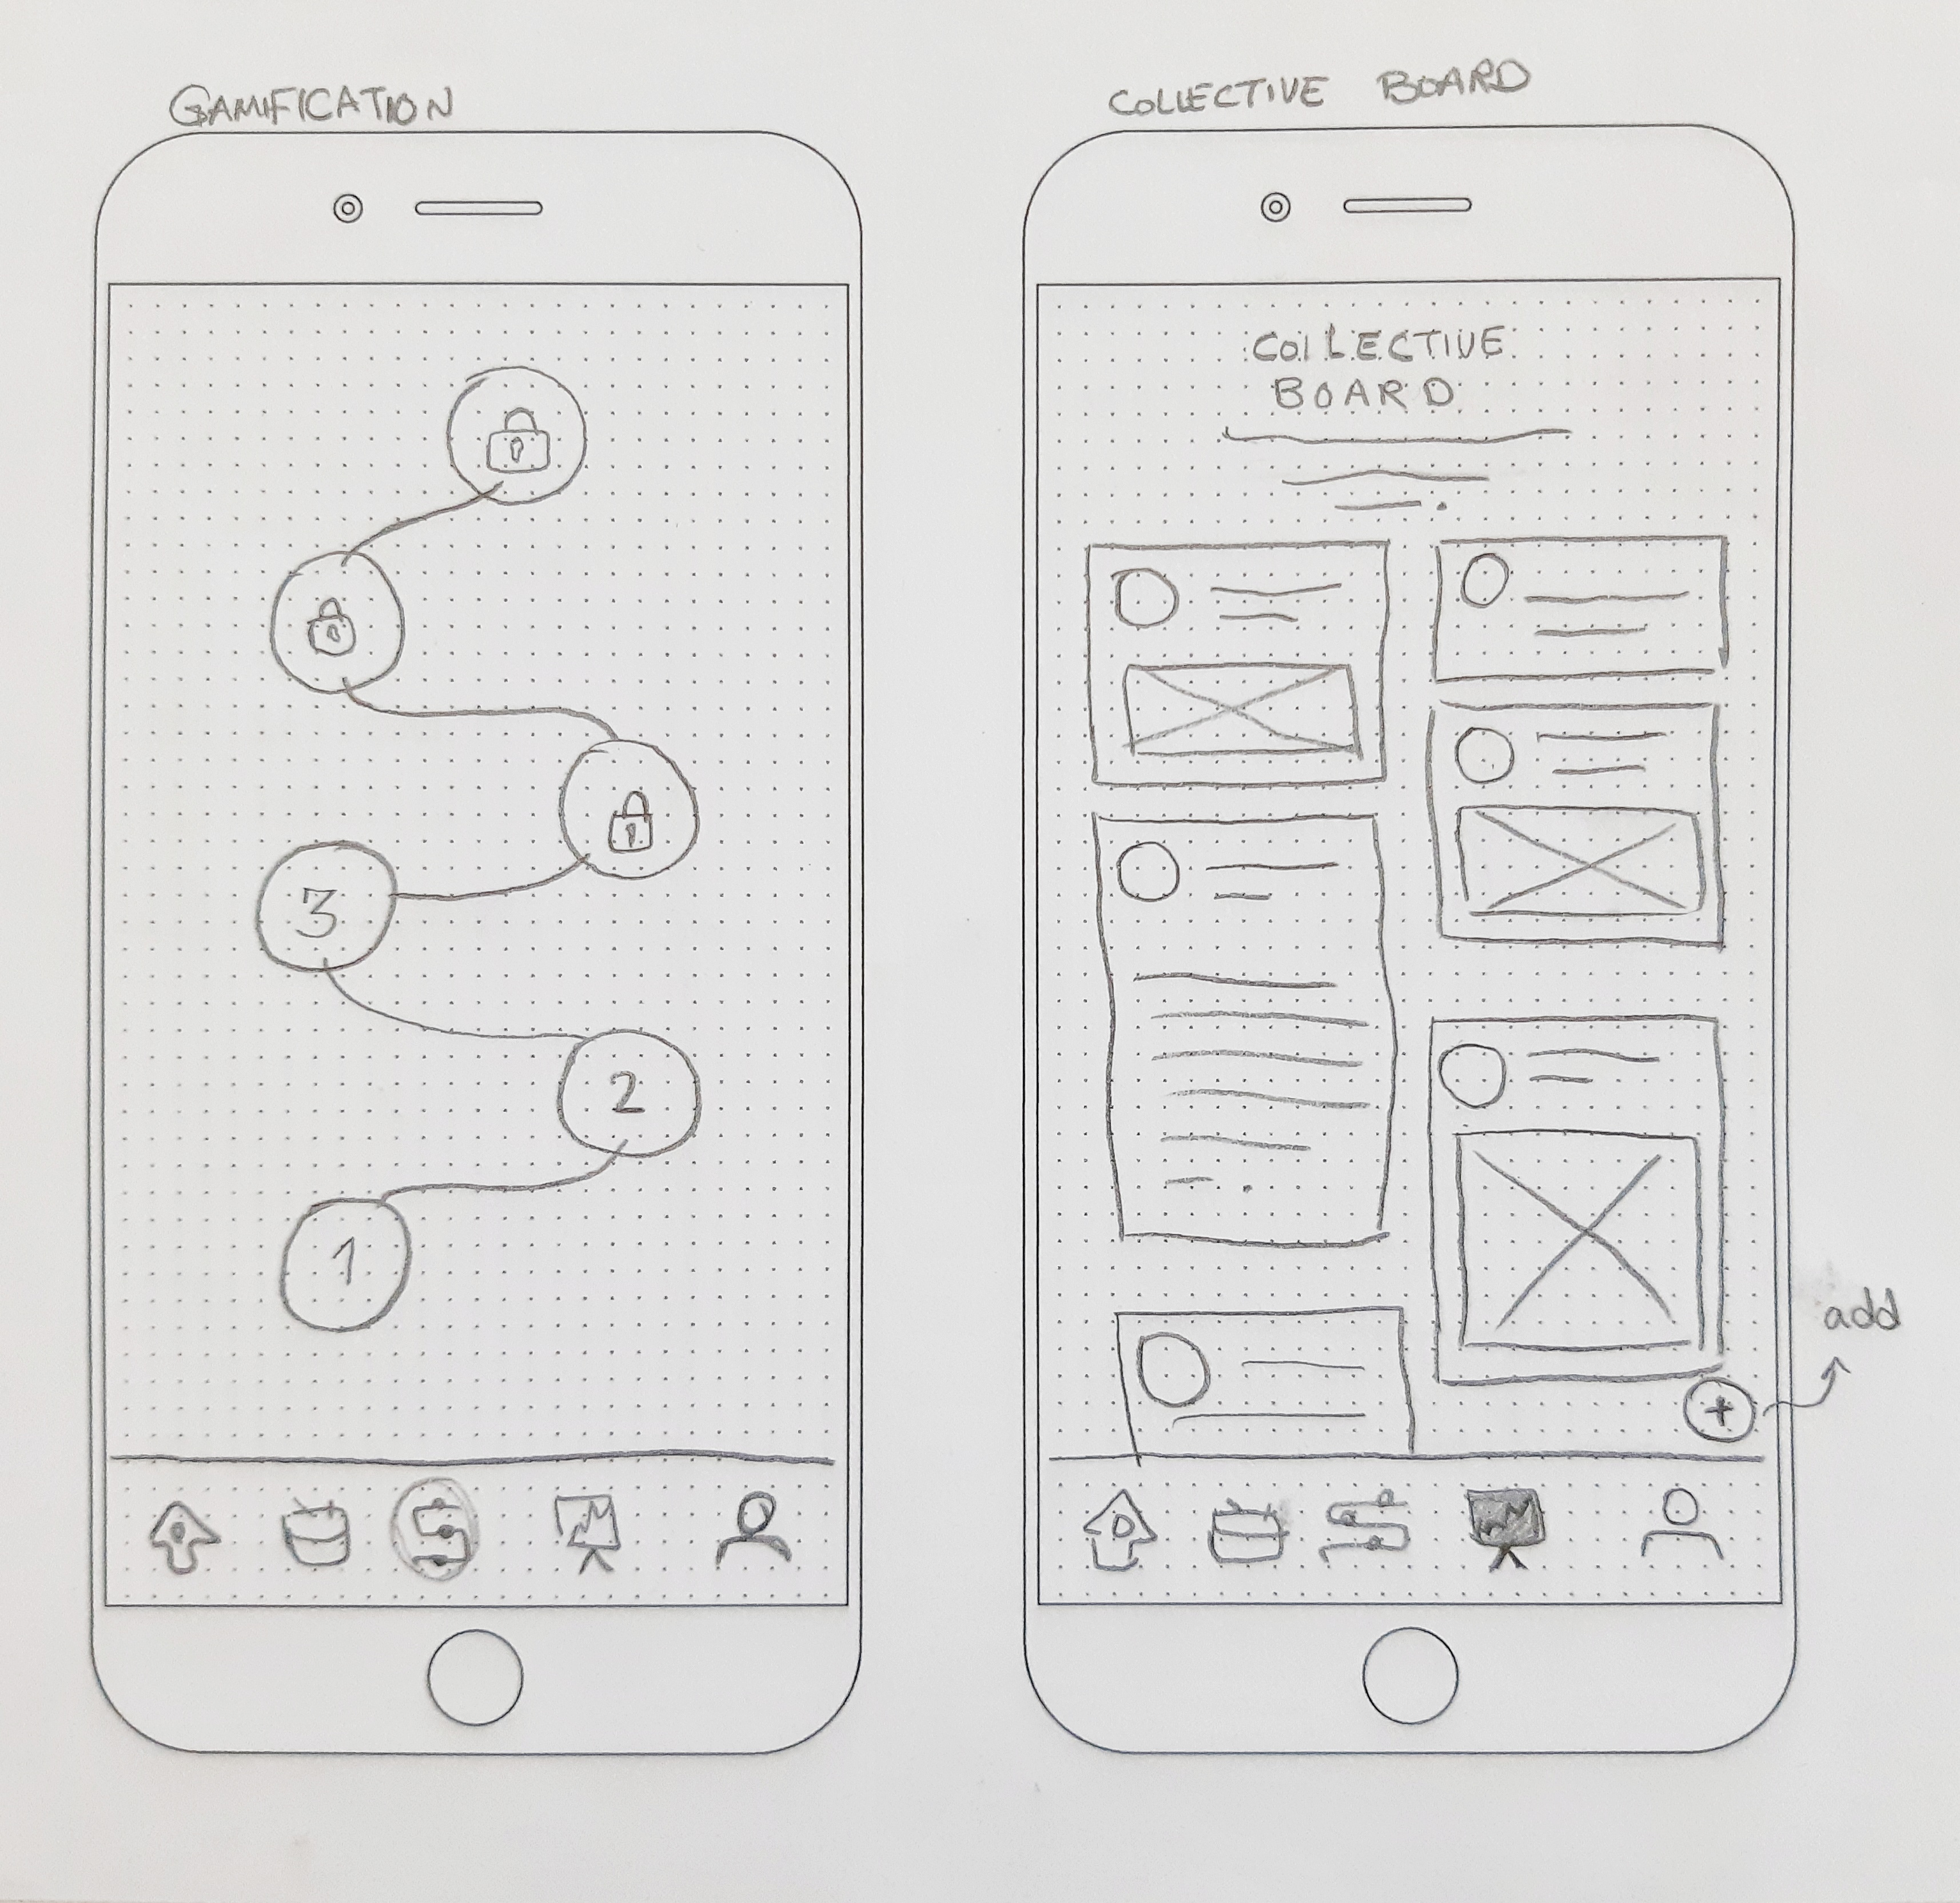 GAMIFICATION
3
2
1
COLLECTIVE BOARD
COLLECTIVE
BOARD
+
add